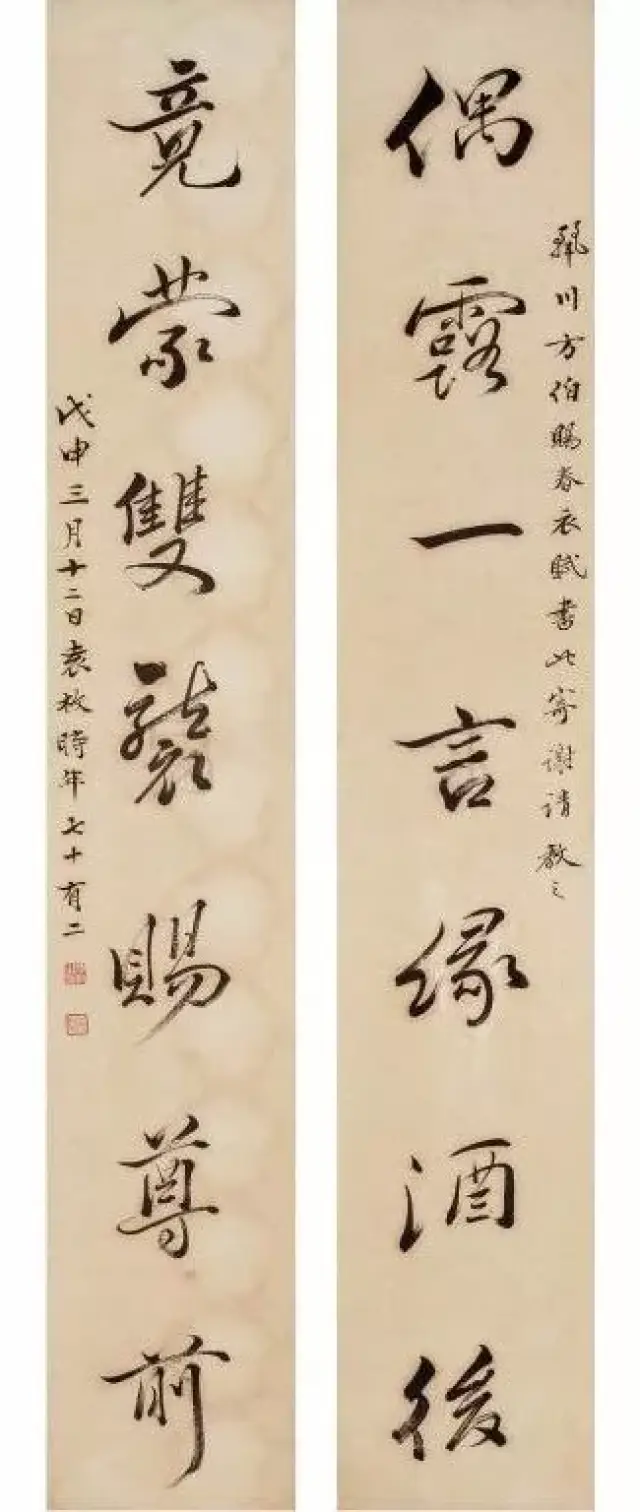 麗川方伯賜春衣賦書此寄謝請教之
偶露一言緣酒後
竟蒙雙襲賜尊前
戊申三月十二日袁枚時年七十有二